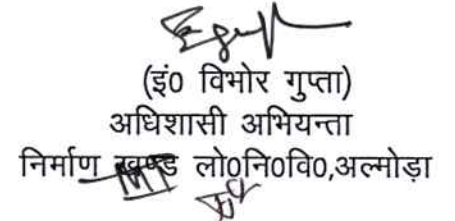 (इं0 विभोर गुप्ता)
अधिशासी अभियन्ता
निर्माण खण्ड लो0नि0वि0,अल्मोड़ा